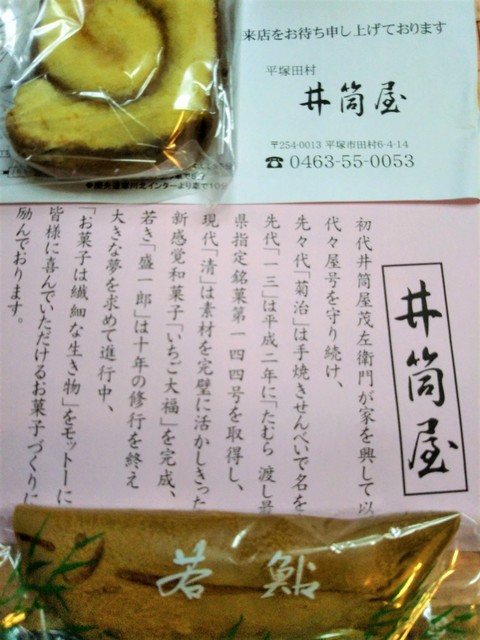 来店をお待ち申し上げております
平塚田村
井筒屋
〒254-0013 平塚市田村6-4-14
☎0463-55-0053
井筒屋
初代井筒屋茂左衛門が家を興して以
代々屋号を守り続け、
先々代「菊治」は手焼きせんべいで名を
先代「一三」は平成二年に「たむら 渡し最
県指定銘菓第一四四号を取得し、
現代「清」は素材を完璧に活かしきった
新感覚和菓子「いちご大福」を完成、
若き「盛一郎」は十年の修行を終え
大きな夢を求めて進行中、
「お菓子は繊細な生き物」をモットーに
皆様に喜んでいただけるお菓子づくりに
励んでおります。
若鮎